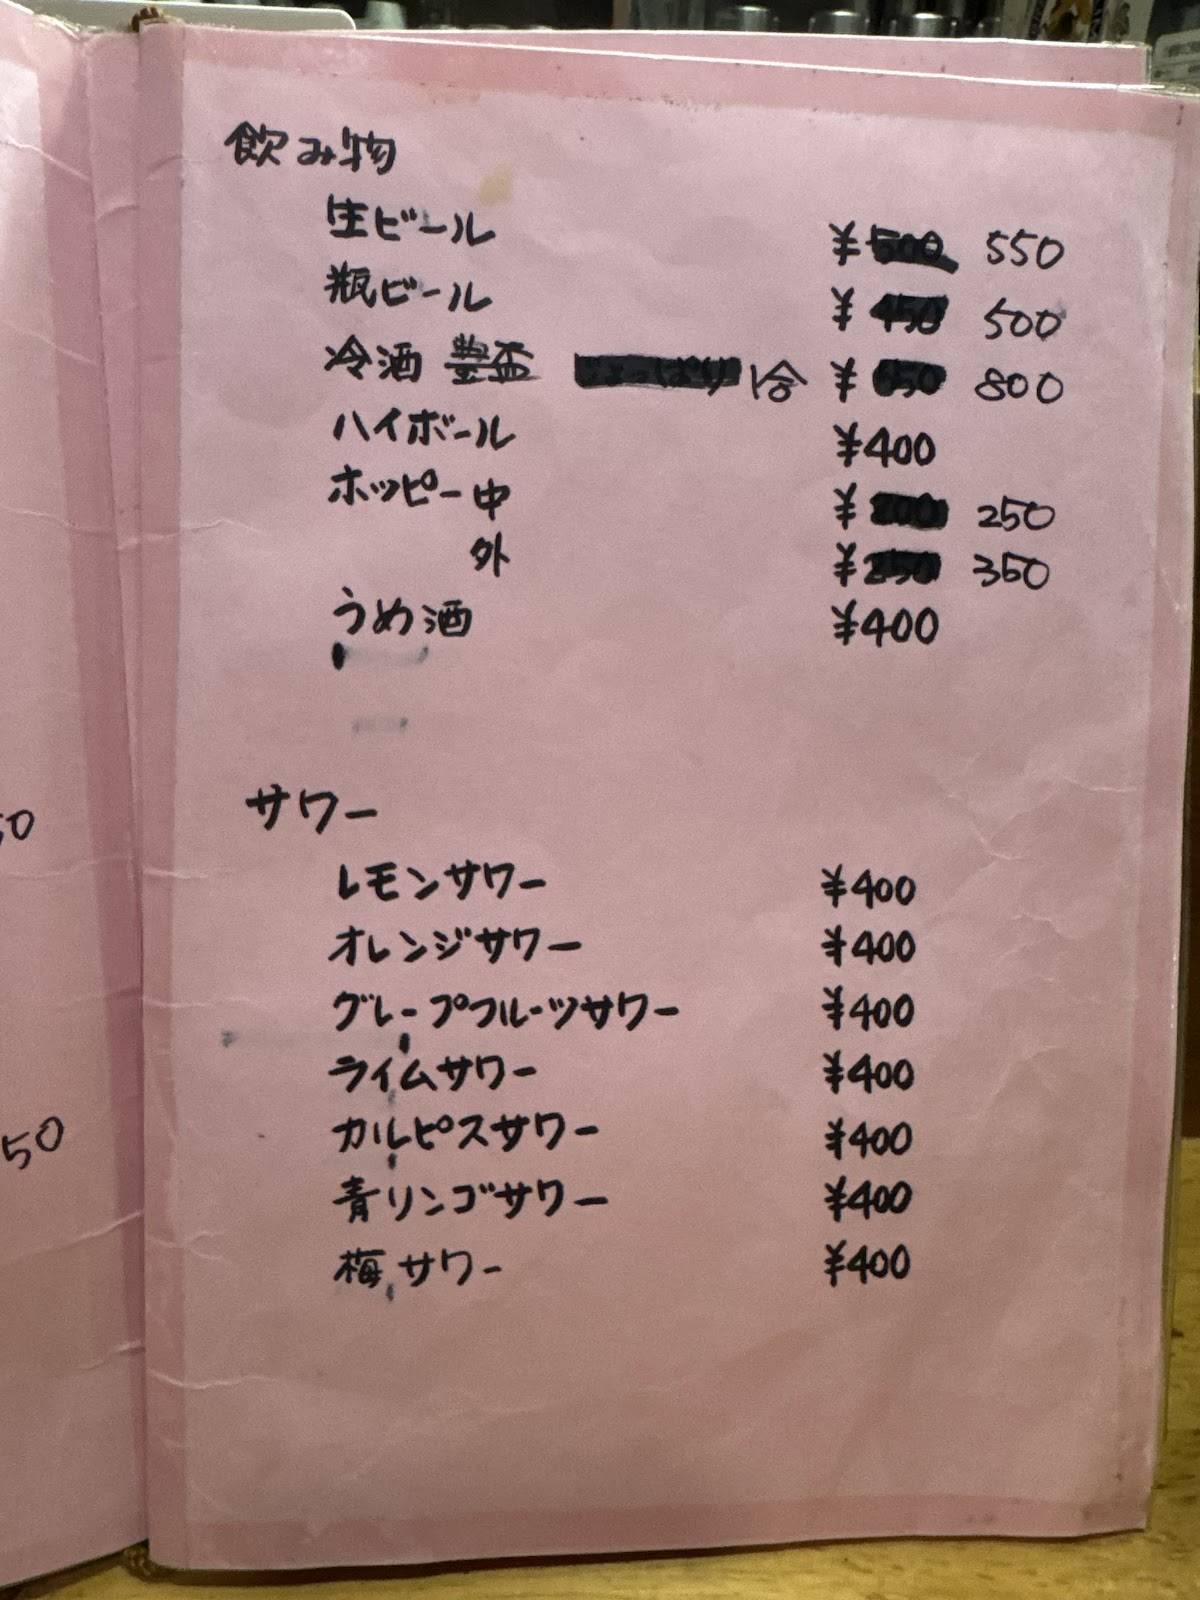 飲み物
生ビール ¥500 550
瓶ビール ¥450 500
冷酒 豊盃 1合 ¥650 800
ハイボール ¥400
ホッピー中 ¥200 250
外 ¥250 350
うめ酒 ¥400
サワー
レモンサワー ¥400
オレンジサワー ¥400
グレープフルーツサワー ¥400
ライムサワー ¥400
カルピスサワー ¥400
青リンゴサワー ¥400
梅サワー ¥400
50
50